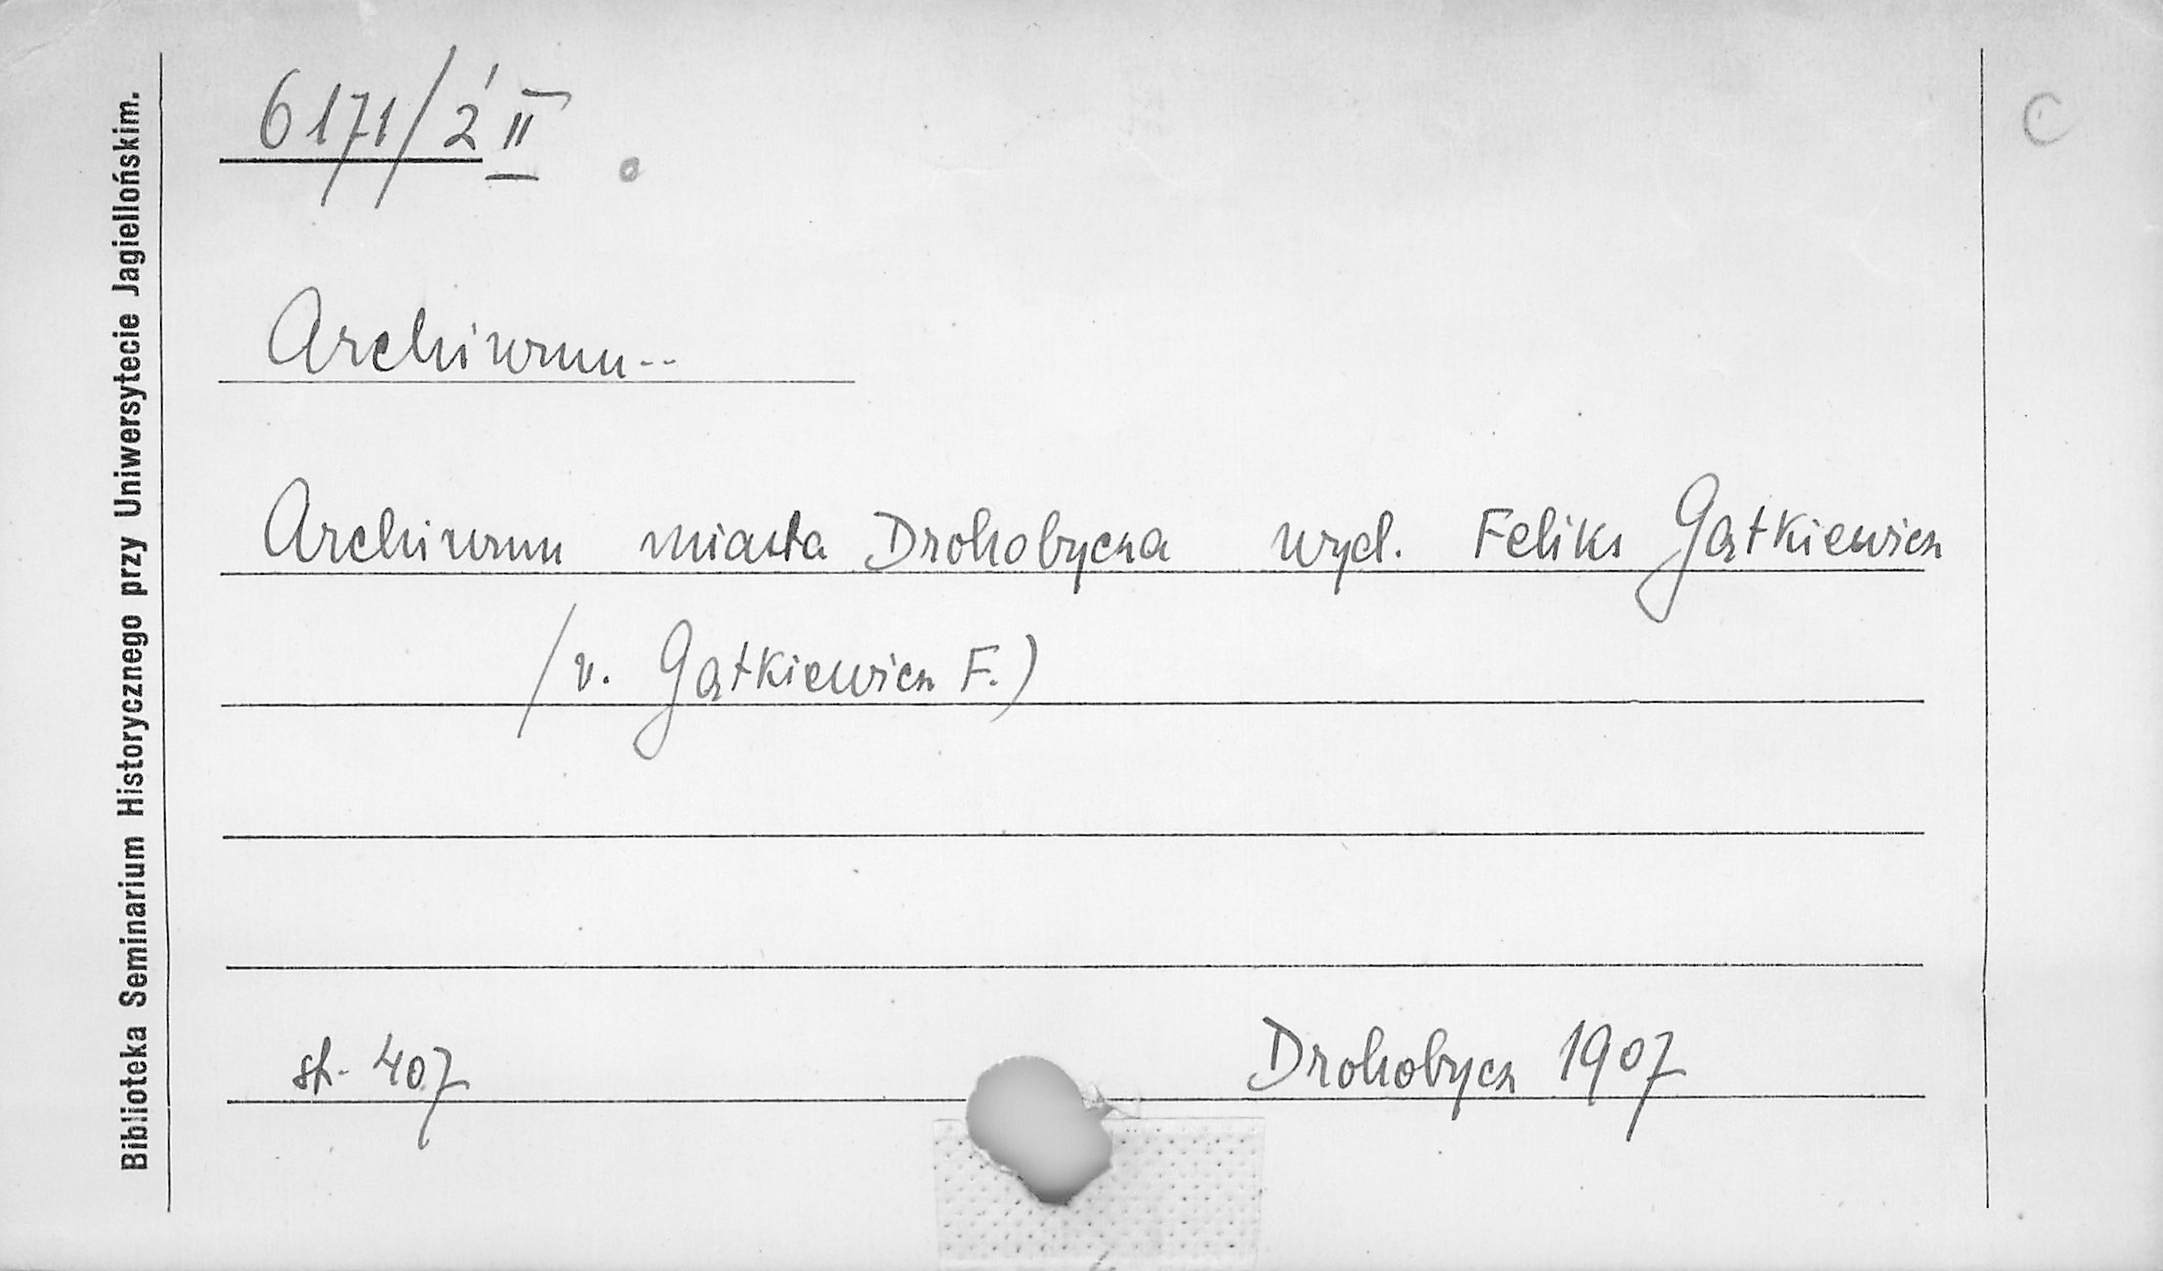 6171/2 II
C
Archiwum--
Archiwum miasta Drohobycza wyd. Feliks Gątkiewicz
/v. Gątkiewicz F.)
st. 407
Drohobycz 1907
Biblioteka Seminarium Historycznego przy Uniwersytecie Jagiellońskim.